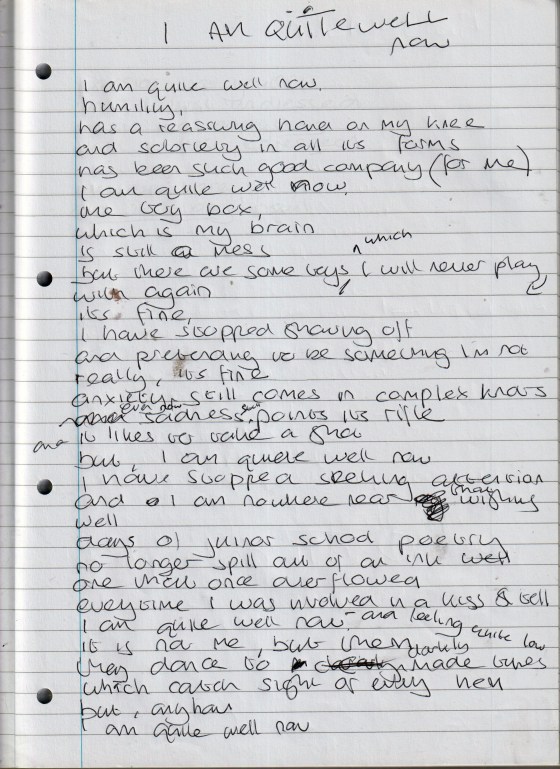 I AM QUITE well
now
I am quite well now,
humility,
has a reassuring hand on my knee
and sobriety in all its forms
has been such good company (for me)
I am quite well now,
the toy box,
which is my brain
is still a mess
which
but there are some toys I will never play
with again
its fine,
I have stopped showing off
and pretending to be something I'm not
really, its fine
anxiety, still comes in complex knots
even now
sadness points its rifle
and
it likes to take a shot
but, I am quite well now
I have stopped seeking attention
and I am nowhere near that wishing
well
days of junior school poetry
no longer spill out of an ink well
one which once overflowed
everytime I was involved in a kiss & tell
I am quite well now - and feeling quite low
it is not me, but them
they dance to darkly made tunes
which catch sight of every hell
but, anyhow
I am quite well now